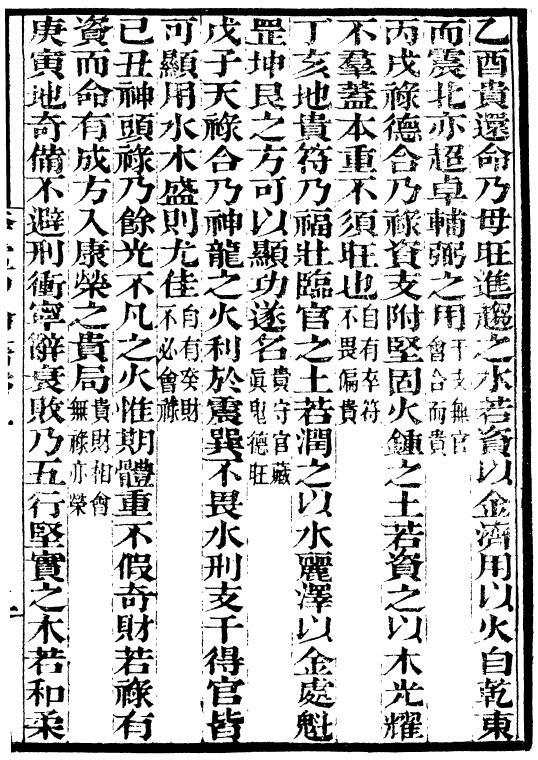 乙酉貴還命乃母旺進趨之水若資以金濟用以火自乾東
而震北亦超卓輔弼之用干支無官會合而貴
丙戌祿德合乃祿資支附堅固火鍾之土若資之以木光耀
不羣蓋本重不須旺也自有符不畏偏貴
丁亥地貴符乃福壯臨官之土若潤之以水麗澤以金處魁
罡坤艮之方可以顯功遂名貴守官藏眞鬼德旺
戊子天祿合乃神龍之火利於震巽不畏水刑支干得官皆
可顯用水木盛則尤佳自有癸財不必會祿
己丑神頭祿乃餘光不凡之火惟期體重不假奇財若祿有
資而命有成方入康榮之貴局貴財相會無祿亦榮
庚寅地奇備不避刑衝寧辭衰敗乃五行堅實之木若和柔